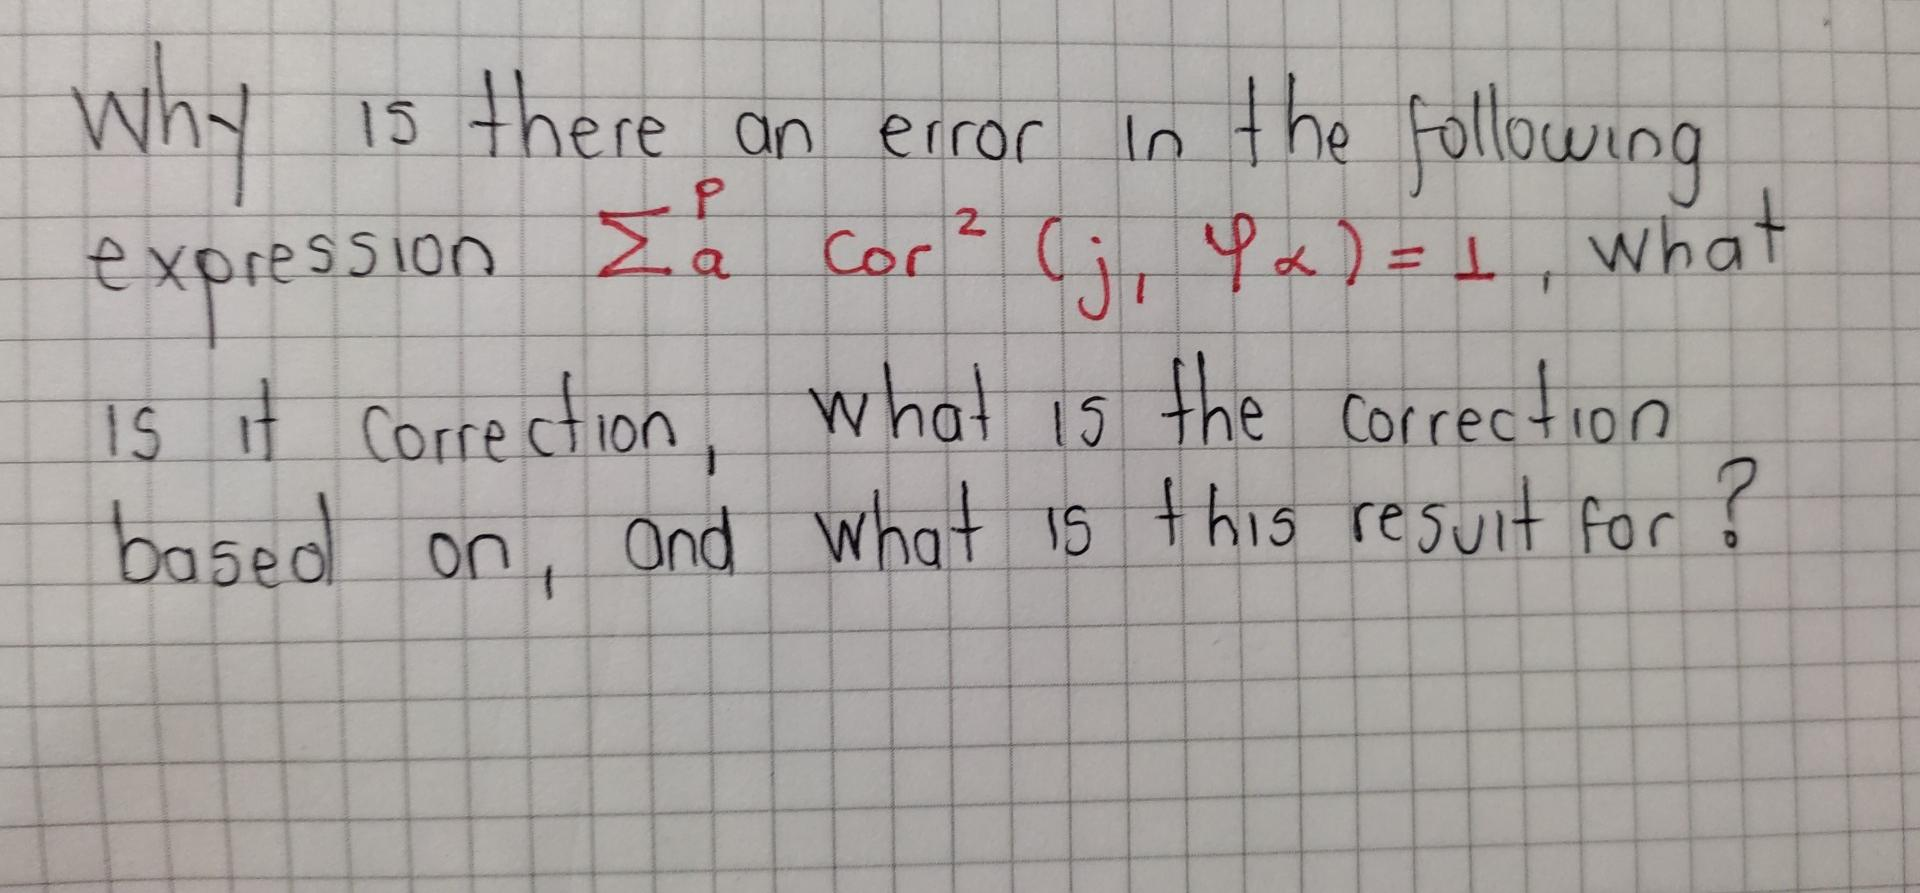 Why is there an error in the following
expression Σ^p_a cor² (j, φα) = 1, what
is it correction, what is the correction
based on, and what is this result for?